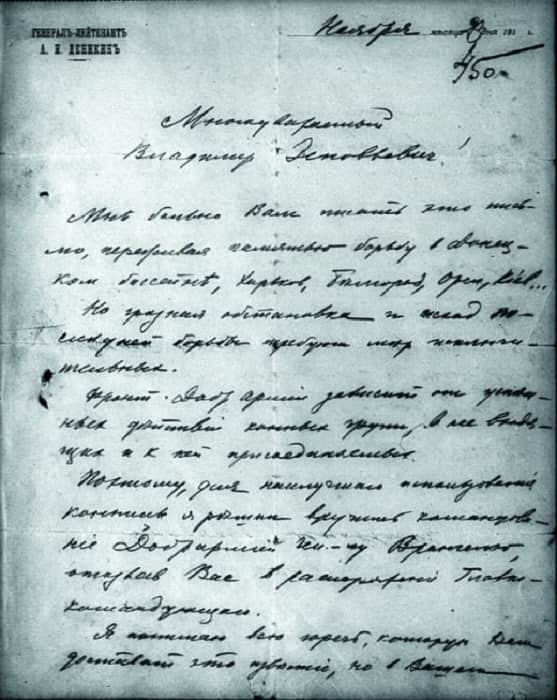 ГЕНЕРАЛЪ-ЛЕЙТЕНАНТЪ
А. И. ДЕНИКИНЪ
Ноября мѣсяца дня 191 г.
Многоуважаемый
Владимір Зеновьевич!
Мнѣ больно Вам писать это пись-
мо, переживая памятью борьбу в Донец-
ком бассейнѣ, Харьков, Бѣлгород, Орел, Кіев...
Но грозная обстановка и исход по-
слѣдней борьбы требуют мѣр исключи-
тельных.
Фронт Добр арміи зависит от успѣш-
ных дѣйствій конных групп, в нее входя-
щих и к ней присоединяемых.
Поэтому, для наилучшаго использованія
конницы я рѣшил вручить командова-
ніе Добр арміей Ген-лу Врангелю,
отозвав Вас в распоряженіе Главно-
командующаго.
Я понимаю всю горечь, которую Вам
доставит это извѣстіе, но в Вашем